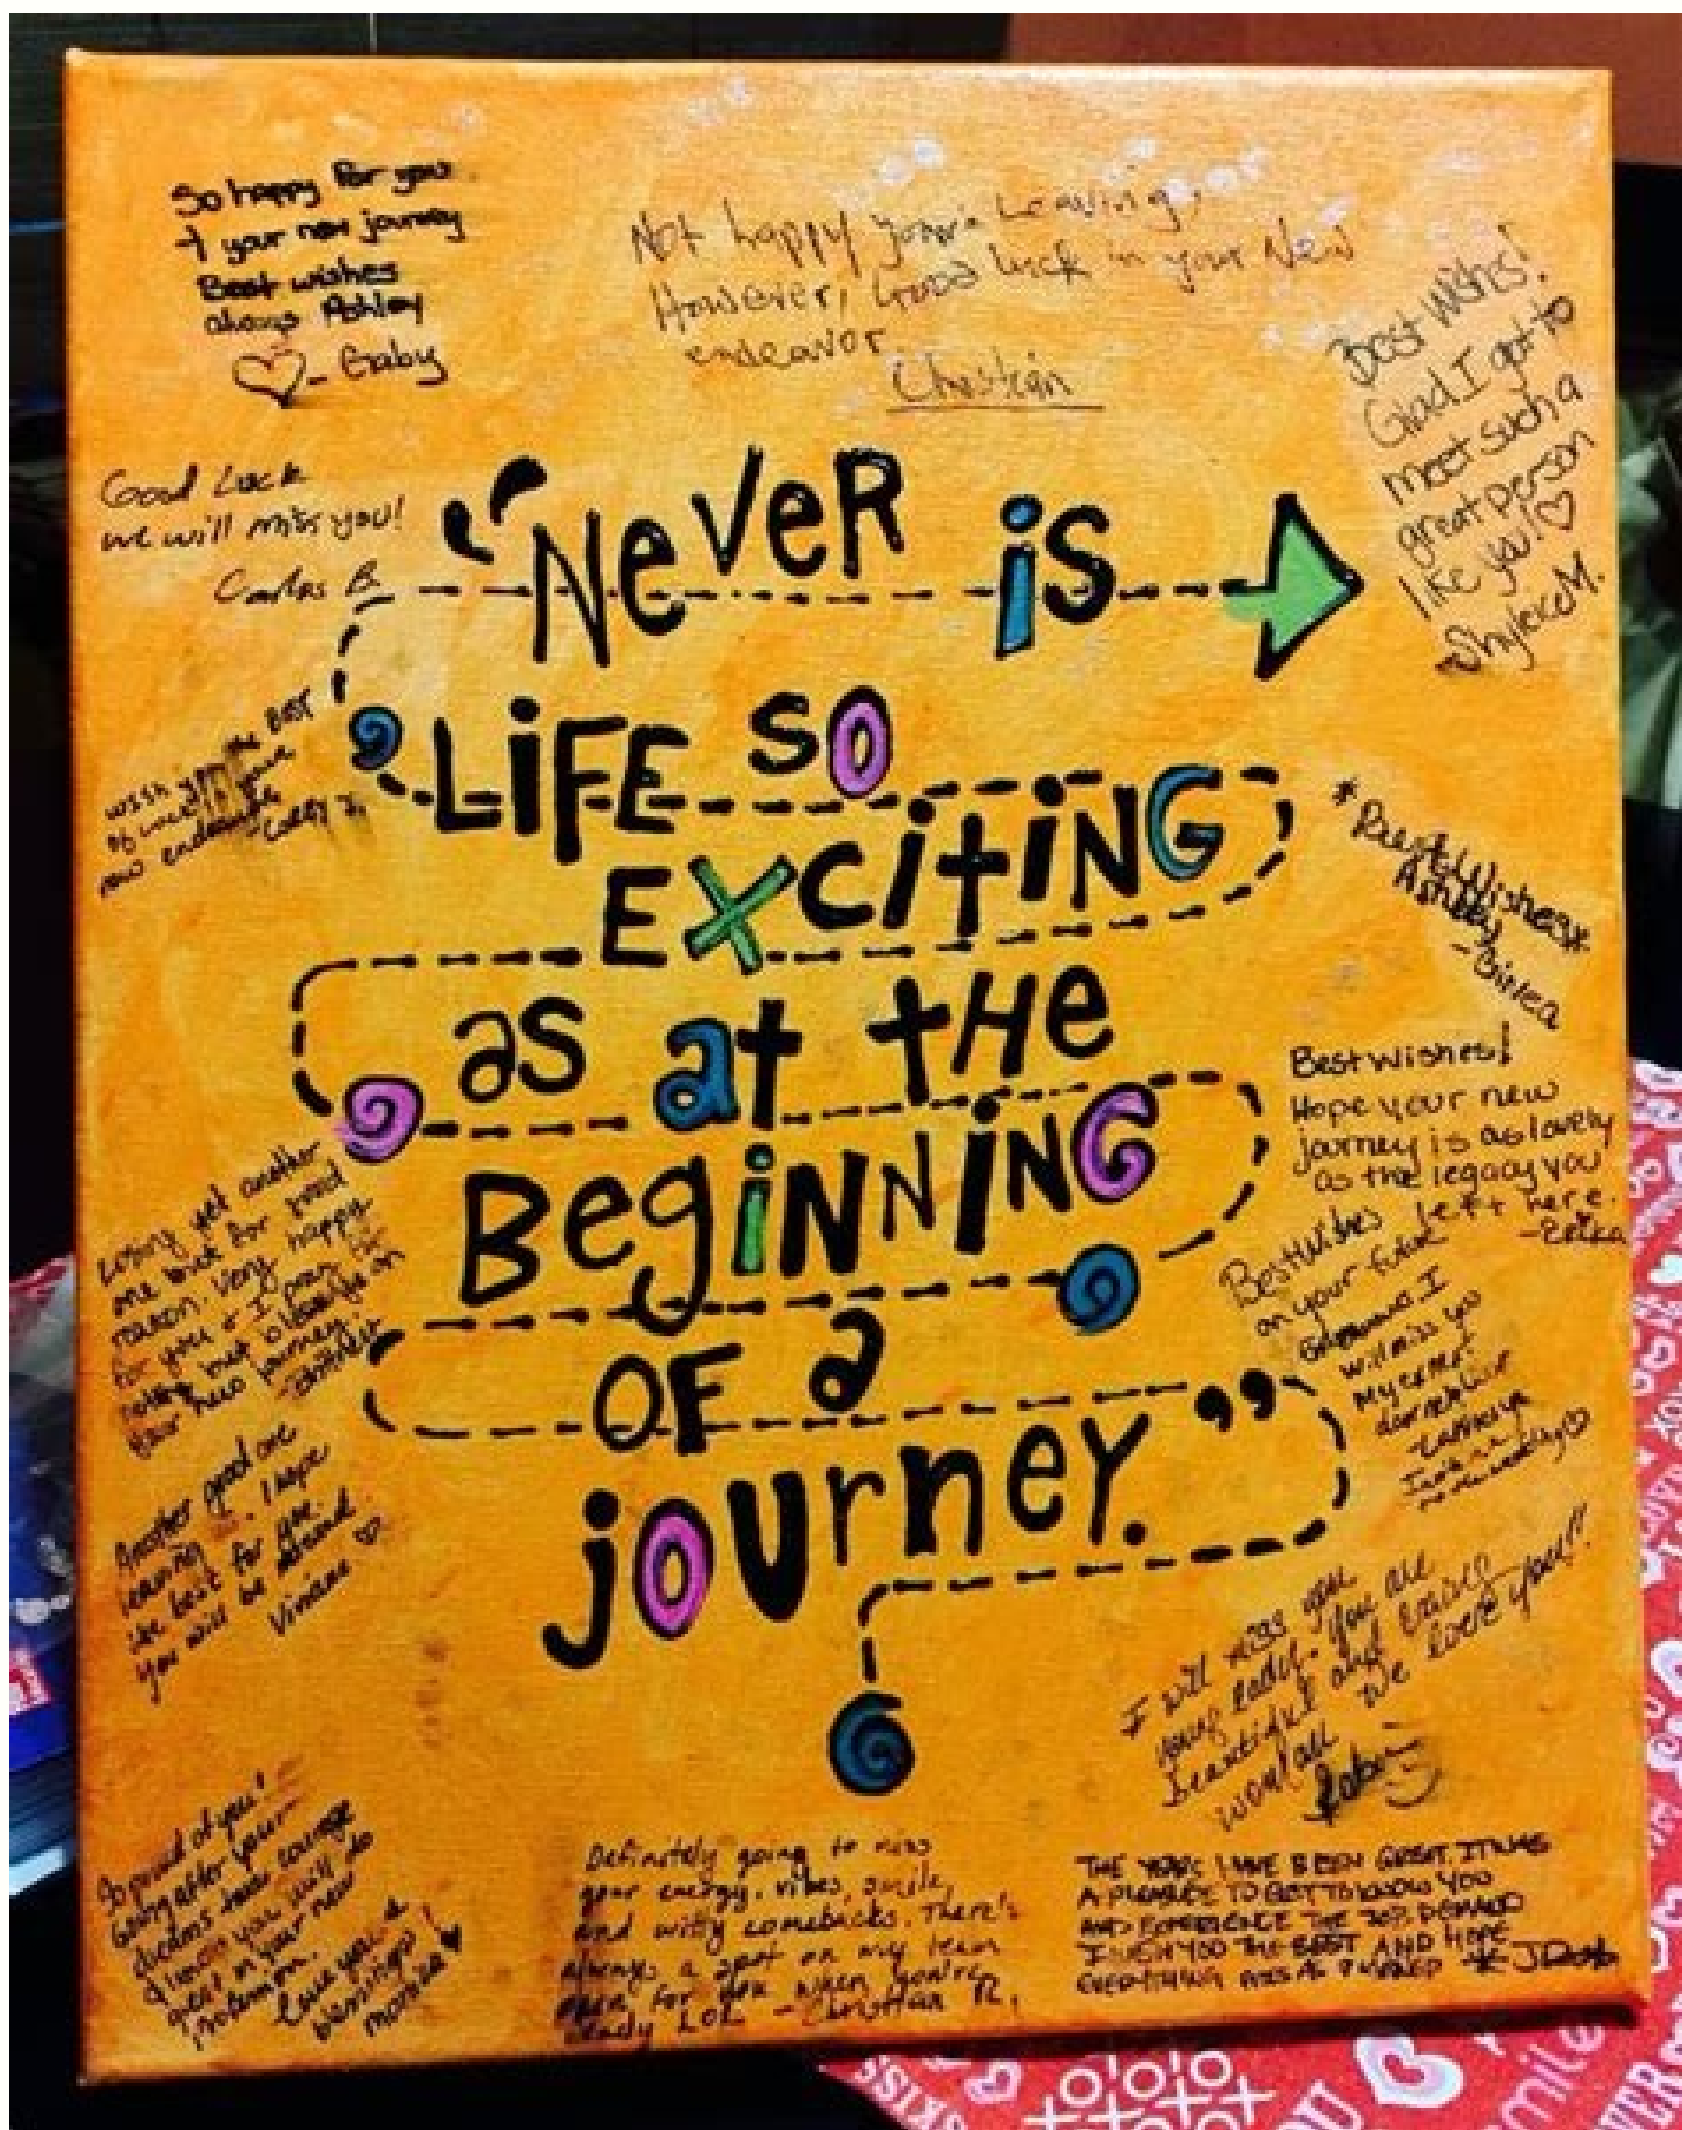 So happy for you
& your new journey
Best wishes
always Ashley
- Gaby
Not happy you're Leaving,
However, Good luck in your New
endeavor.
Christian
Best Wishes!
Glad I got to
meet such a
great person
like you!
Good Luck
we will miss you!
Carlos B.
"Never is
Life so
Exciting
as at the
Beginning
of a
journey."
wish you the Best
of luck in your
new endeavor
*Best Wishes*
Ashley
Best wishes!
Hope your new
journey is as lovely
as the legacy you
left here.
-Erika
Best Wishes
on your future
I
will miss you
my
Losing yet another
one but for good
reason. Very happy
for you & I pray
nothing but blessings on
your new journey.
Another good one
leaving. I hope
the best for you.
you will be missed
Viviane
I will miss you
young lady. You are
beautiful and
woman We love you!!
So proud of you!
Going after your
dreams takes courage
I know you will do
great in your new
profession.
Love you &
blessings
Monica
Definitely going to miss
your energy, vibes, smile,
and witty comebacks. There's
always a spot on my team
open for you when you're
ready LOL - Christian R.
THE YEARS HAVE BEEN GREAT, IT WAS
A PLEASURE TO GET TO KNOW YOU
AND EXPERIENCE THE
I WISH YOU THE BEST AND HOPE
EVERYTHING GOES AS PLANNED
SKISS
XOXO
YOU
smile